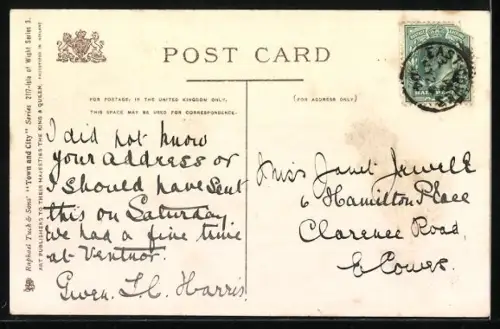 Raphael Tuck & Sons' "Town and City" Series 2117-Isle of Wight Series 3.
ART PUBLISHERS TO THEIR MAJESTIES THE KING & QUEEN.
POST CARD
FOR POSTAGE, IN THE UNITED KINGDOM ONLY,
THIS SPACE MAY BE USED FOR CORRESPONDENCE.
(FOR ADDRESS ONLY)
I did not know
your address or
I should have sent
this on Saturday.
We had a fine time
at Ventnor.
Gwen. Harris
Miss Janet Jewell
6 Hamilton Place
Clarence Road,
E Cowes.
EAST